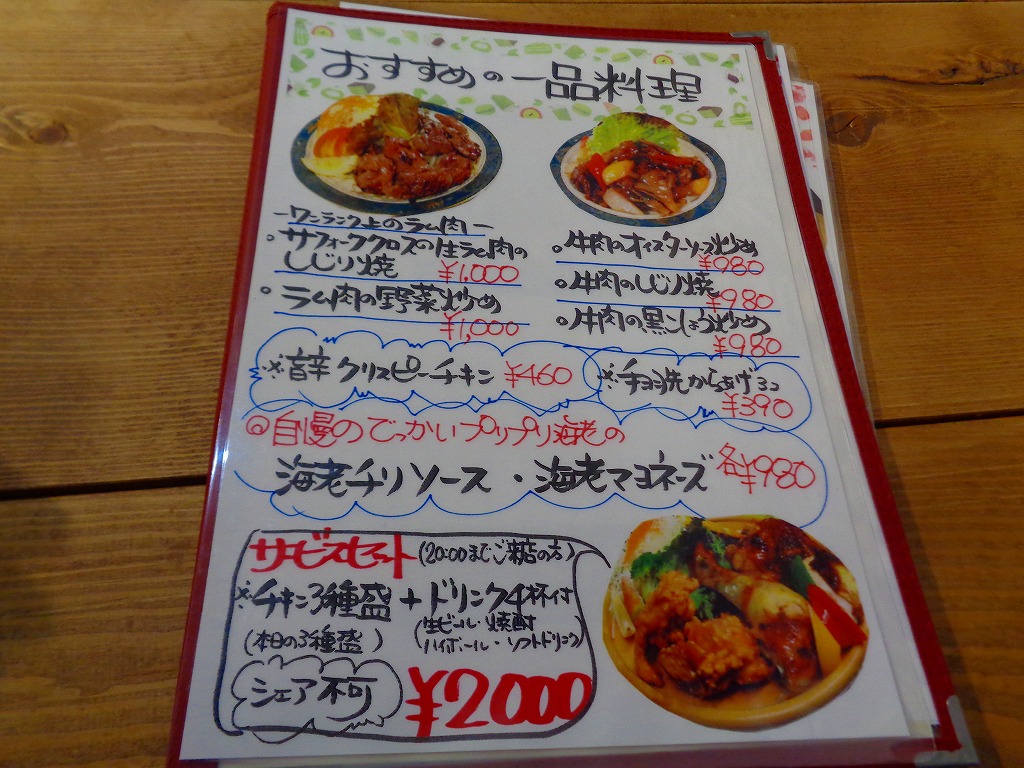 おすすめの一品料理
ーワンランク上のラム肉ー
。サフォーククロスの生ラム肉の
しじり焼 ¥1,000
。ラム肉の野菜炒め
¥1,000
。牛肉のオイスターソース炒め
¥980
。牛肉のしじり焼
¥980
。牛肉の黒こしょう炒め
¥980
※旨辛クリスピーチキン ¥460
からあげ3コ
¥390
◎自慢のでっかいプリプリ海老の
海老チリソース・海老マヨネーズ 各¥980
サービスセット(20:00までご来店の方)
※チキン3種盛+ドリンク4杯付
(本日の3種盛)
(生ビール・焼酎
ハイボール・ソフトドリンク)
シェア不可
¥2000